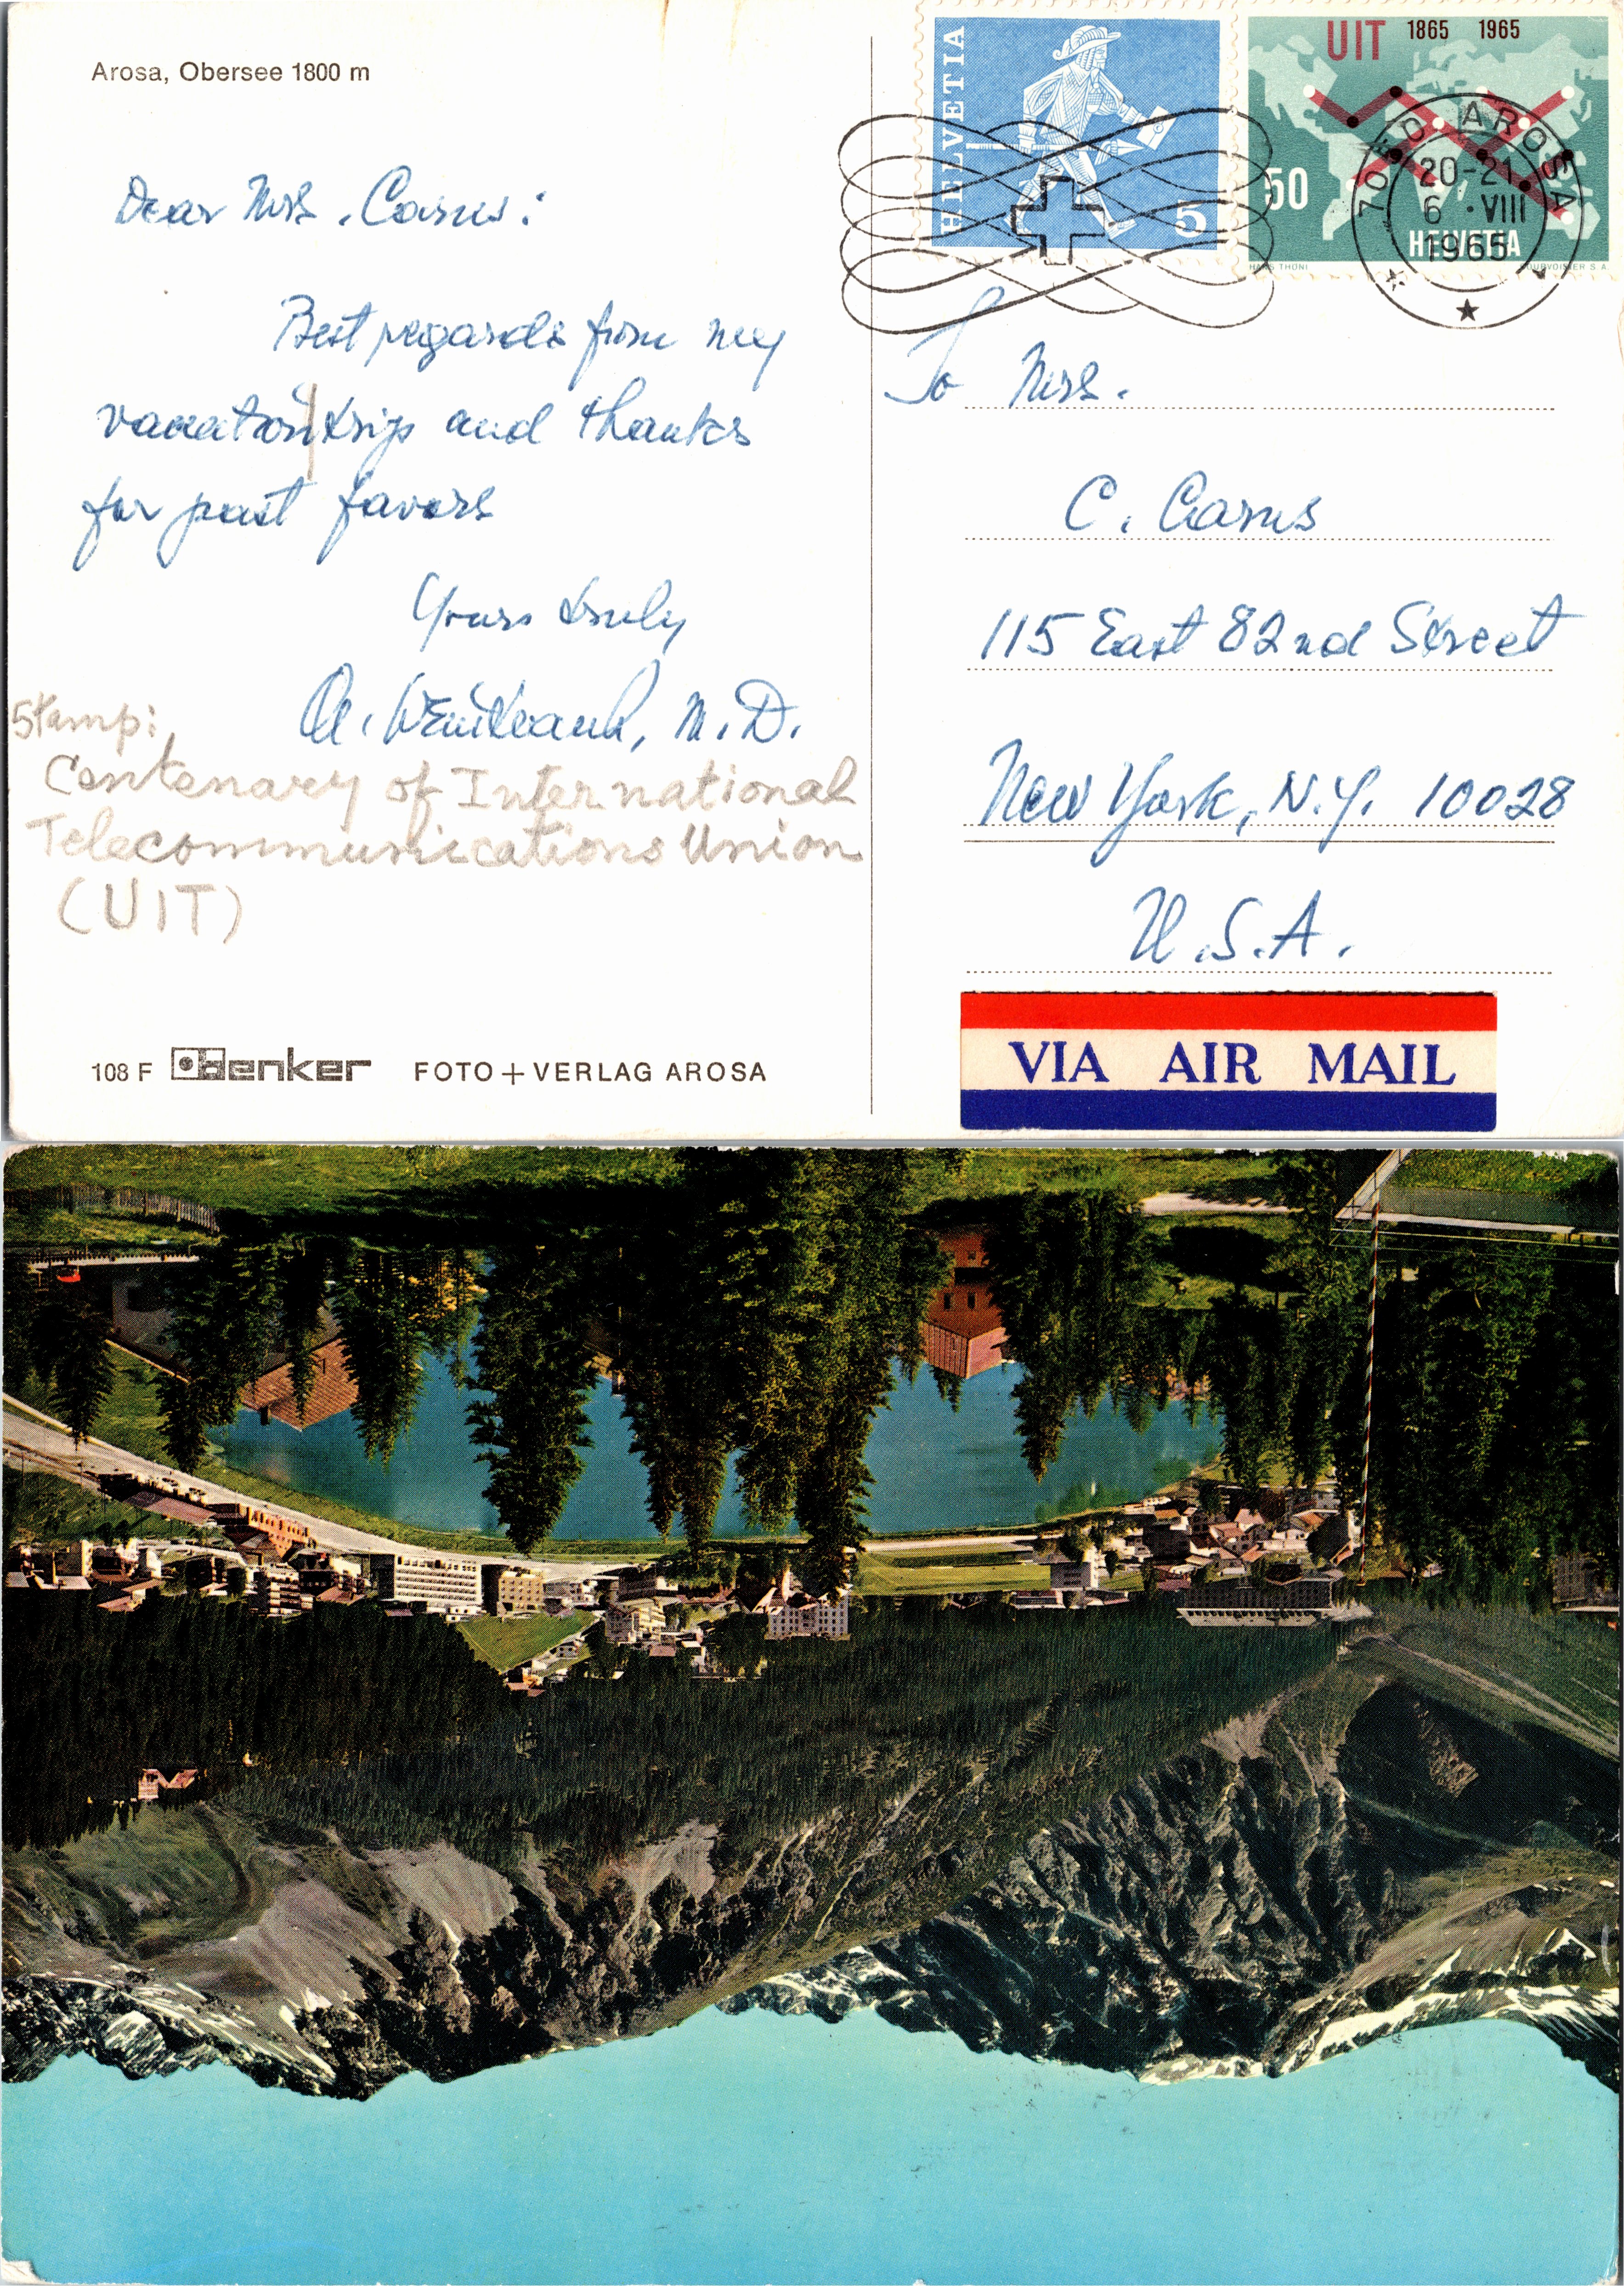 Arosa, Obersee 1800 m
HELVETIA
5
UIT 1865 1965
50
HELVETIA
HANS THÖNI
COURVOISIER S.A.
7050 AROSA
20-21
6 ·VIII
1965
Dear Mrs. Carus:
Best regards from my
vacation trip and thanks
for past favors
Yours truly
M.D.
Stamp:
Centenary of International
Telecommunications Union
(UIT)
To Mrs.
C. Carus
115 East 82nd Street
New York, N.Y. 10028
U.S.A.
VIA AIR MAIL
108 F denker FOTO+VERLAG AROSA